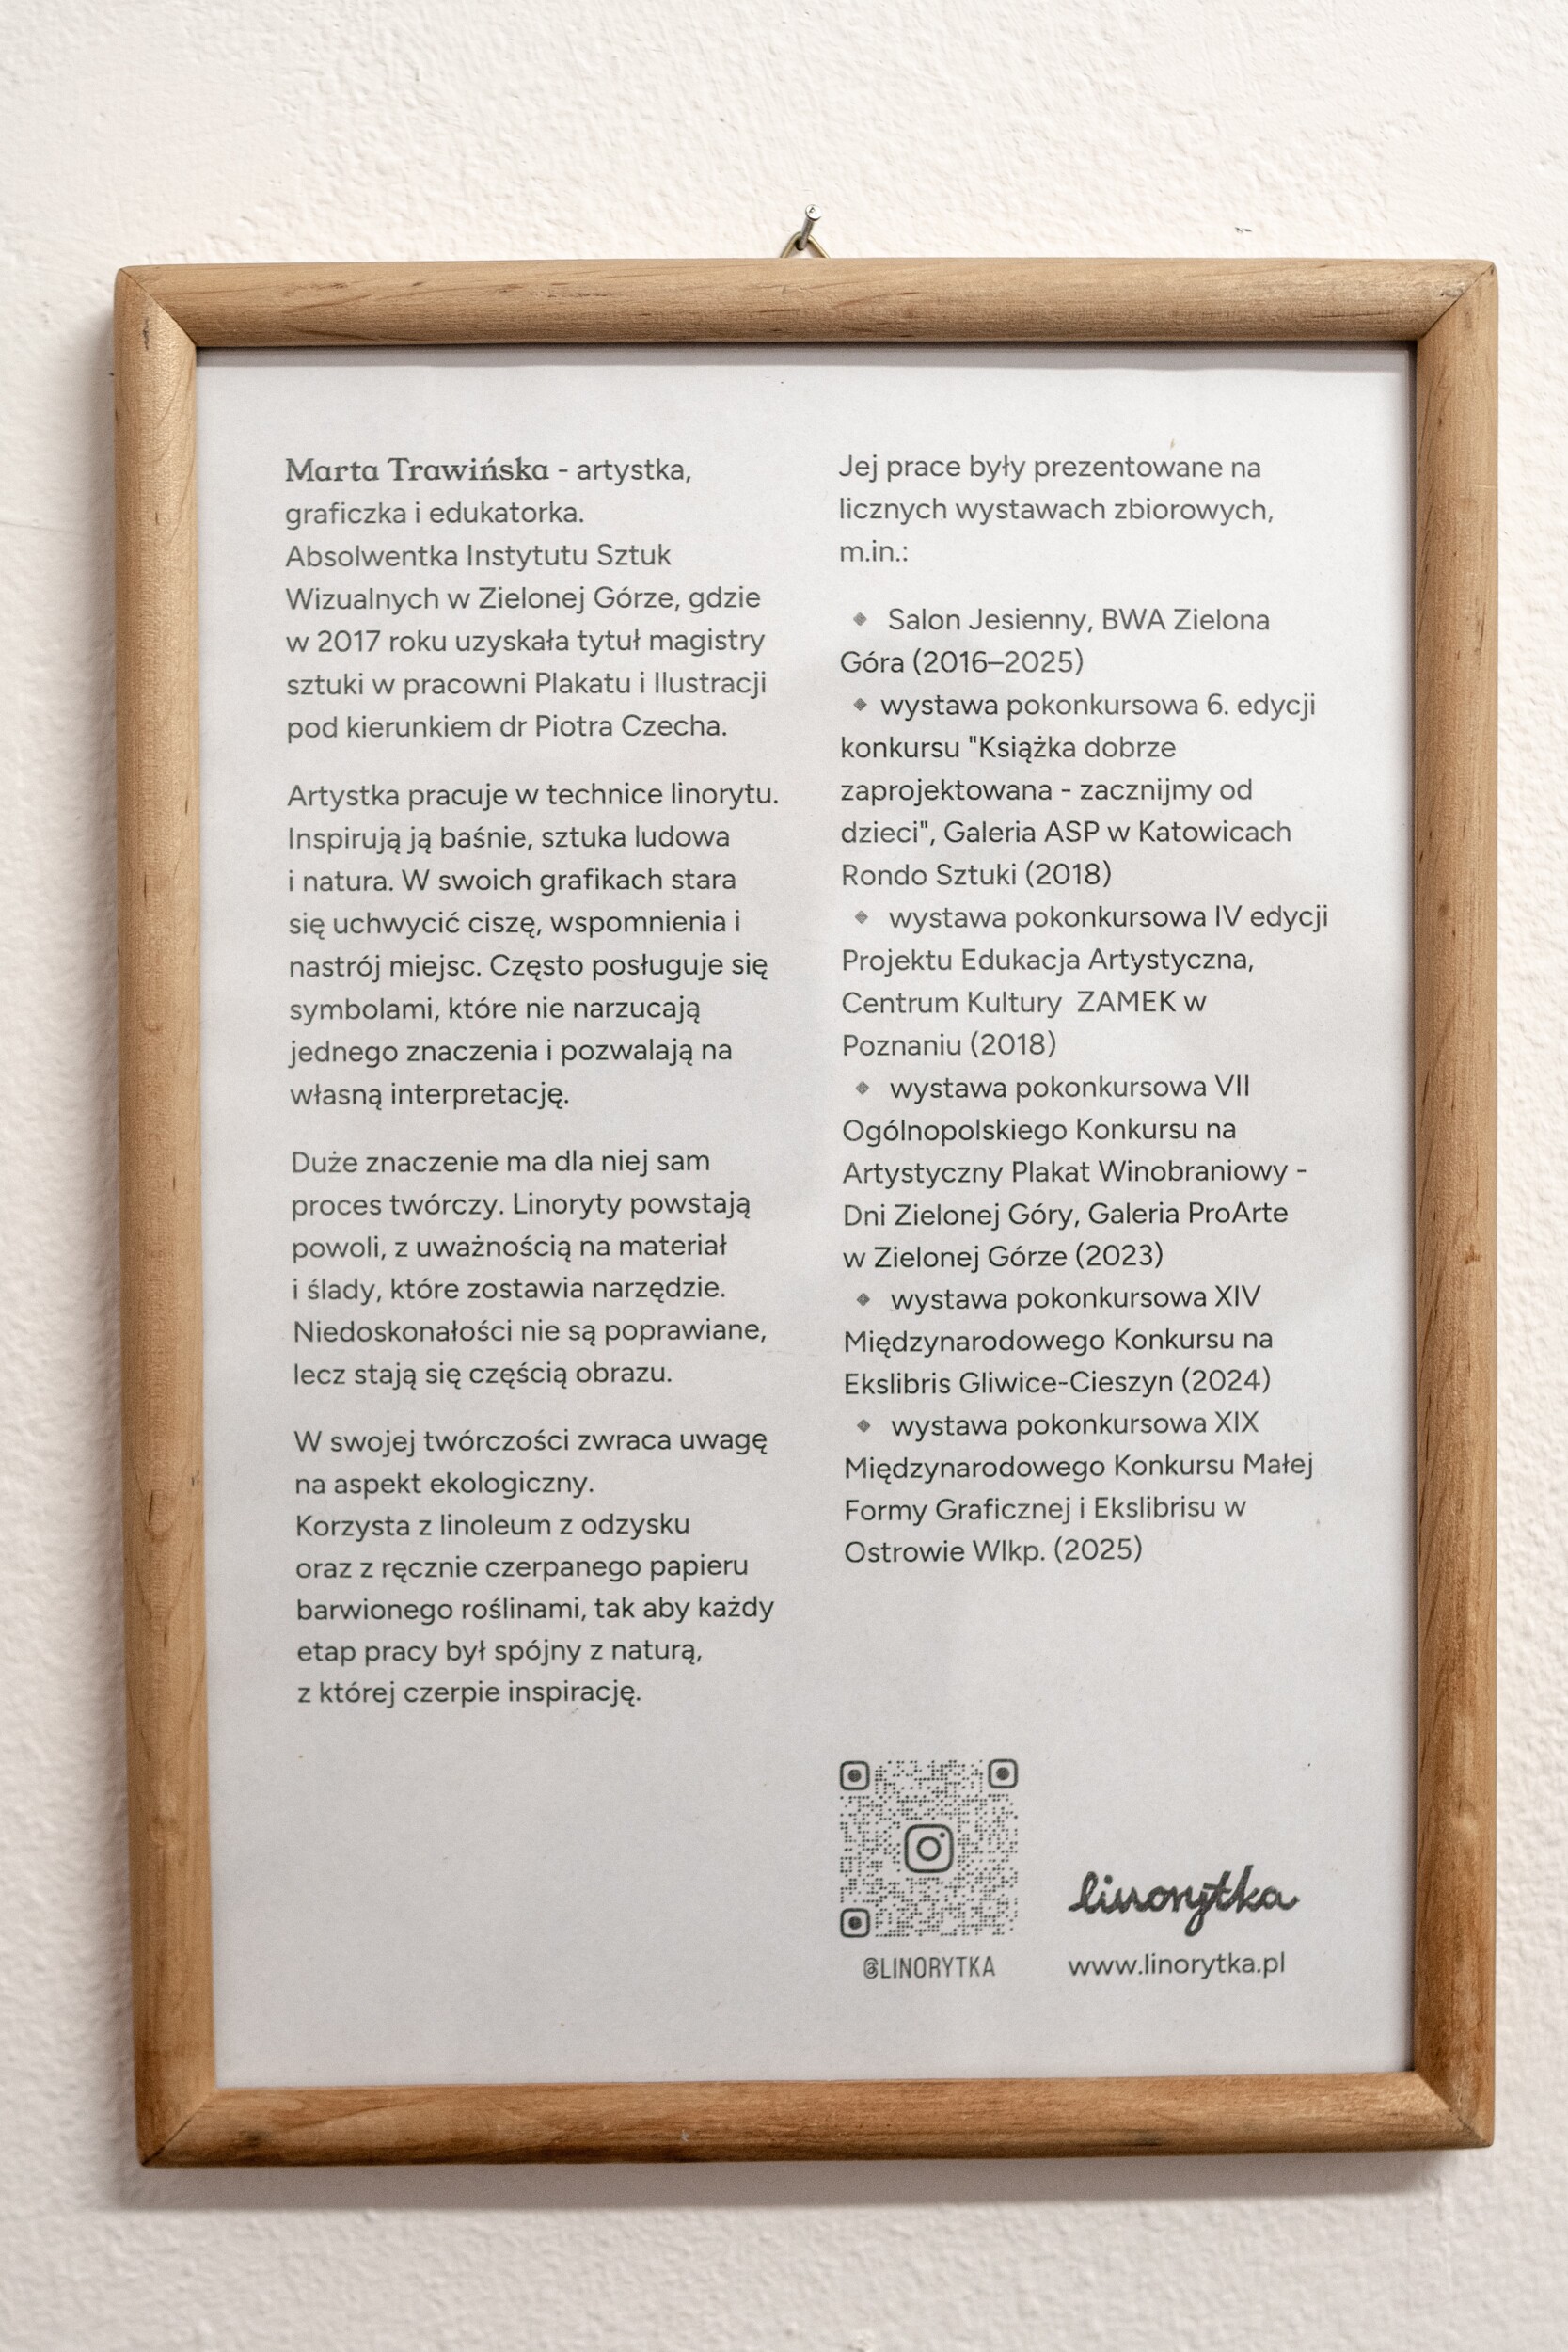 Marta Trawińska - artystka,
graficzka i edukatorka.
Absolwentka Instytutu Sztuk
Wizualnych w Zielonej Górze, gdzie
w 2017 roku uzyskała tytuł magistry
sztuki w pracowni Plakatu i Ilustracji
pod kierunkiem dr Piotra Czecha.
Artystka pracuje w technice linorytu.
Inspirują ją baśnie, sztuka ludowa
i natura. W swoich grafikach stara
się uchwycić ciszę, wspomnienia i
nastrój miejsc. Często posługuje się
symbolami, które nie narzucają
jednego znaczenia i pozwalają na
własną interpretację.
Duże znaczenie ma dla niej sam
proces twórczy. Linoryty powstają
powoli, z uważnością na materiał
i ślady, które zostawia narzędzie.
Niedoskonałości nie są poprawiane,
lecz stają się częścią obrazu.
W swojej twórczości zwraca uwagę
na aspekt ekologiczny.
Korzysta z linoleum z odzysku
oraz z ręcznie czerpanego papieru
barwionego roślinami, tak aby każdy
etap pracy był spójny z naturą,
z której czerpie inspirację.
Jej prace były prezentowane na
licznych wystawach zbiorowych,
m.in.:
◆ Salon Jesienny, BWA Zielona
Góra (2016–2025)
◆ wystawa pokonkursowa 6. edycji
konkursu "Książka dobrze
zaprojektowana - zacznijmy od
dzieci", Galeria ASP w Katowicach
Rondo Sztuki (2018)
◆ wystawa pokonkursowa IV edycji
Projektu Edukacja Artystyczna,
Centrum Kultury ZAMEK w
Poznaniu (2018)
◆ wystawa pokonkursowa VII
Ogólnopolskiego Konkursu na
Artystyczny Plakat Winobraniowy -
Dni Zielonej Góry, Galeria ProArte
w Zielonej Górze (2023)
◆ wystawa pokonkursowa XIV
Międzynarodowego Konkursu na
Ekslibris Gliwice-Cieszyn (2024)
◆ wystawa pokonkursowa XIX
Międzynarodowego Konkursu Małej
Formy Graficznej i Ekslibrisu w
Ostrowie Wlkp. (2025)
@LINORYTKA
linorytka
www.linorytka.pl